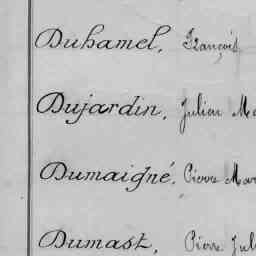 Duhamel, François
Dujardin, Julien Ma
Dumaigné, Pierre Mar
Dumast, Pierre Jul